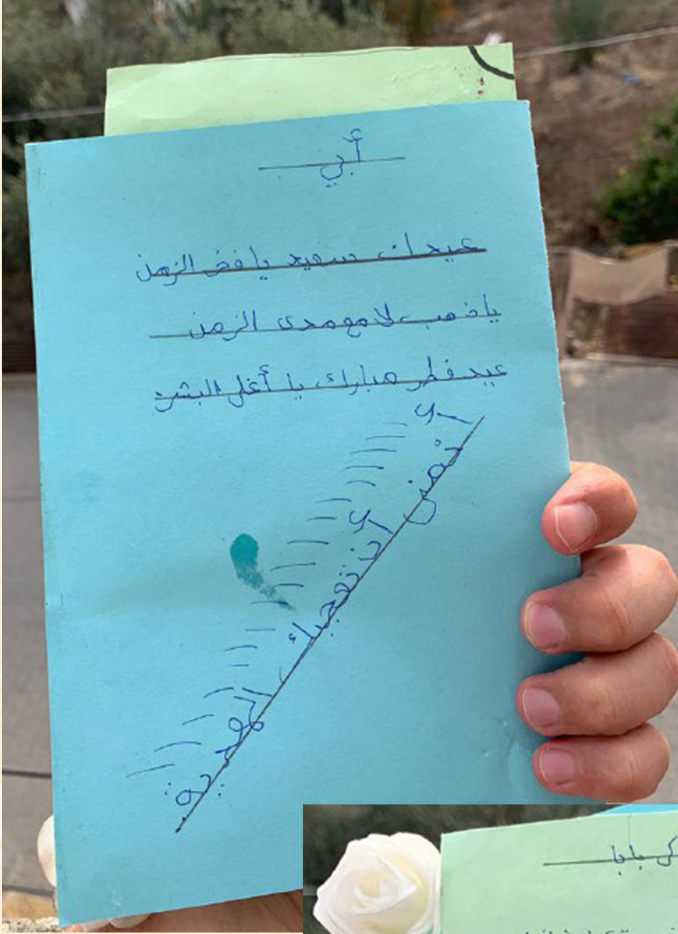 أبي
عيدك سعيد يا فخر الزمن
يا ذهب لامع مدى الزمن
عيد فطر مبارك يا أغلى البشر
أتمنى أن تعجبك الهدية
بابا